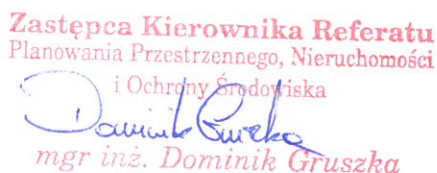 Zastępca Kierownika Referatu
Planowania Przestrzennego, Nieruchomości
i Ochrony Środowiska
Dominik Gruszka
mgr inż. Dominik Gruszka